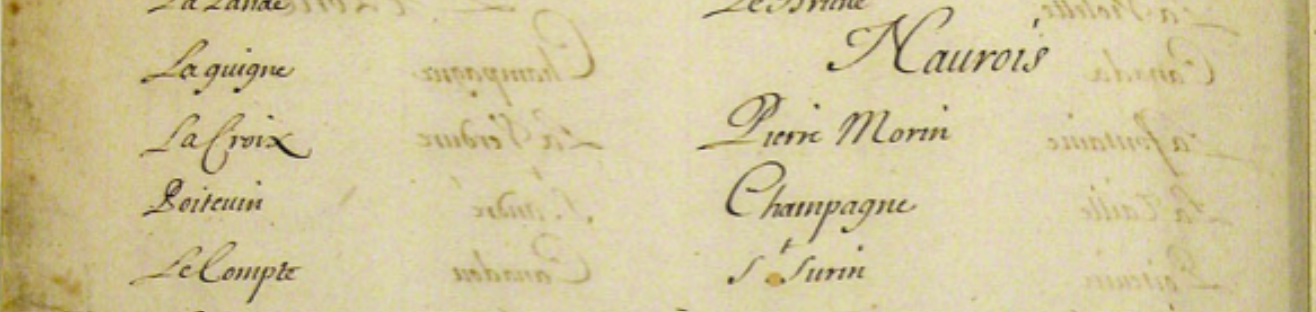 La Lande
Laguigne
La Croix
Poitevin
Le Compte
Le Brune
Naurois
Pierre Morin
Champagne
St Surin